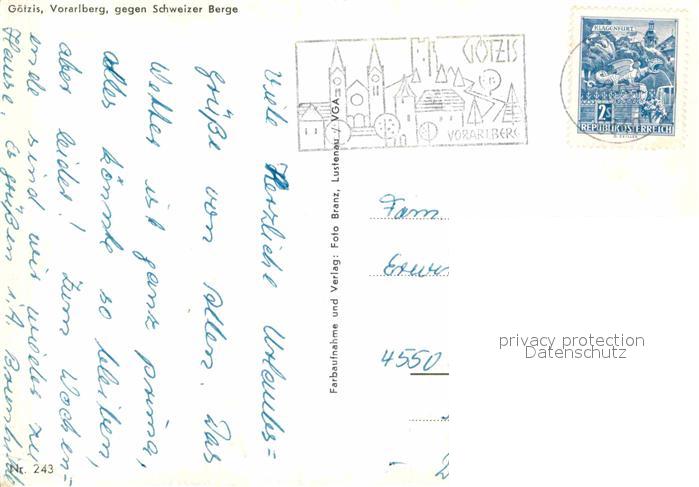 Götzis, Vorarlberg, gegen Schweizer Berge
Viele Herzliche Urlaubs-
grüße von Allen. Das
Wetter ist ganz prima,
alles könnte so bleiben,
aber leider! Zum Wochen-
ende sind wir wieder zu
Hause. Es grüßen i.A.
Nr. 243
Farbaufnahme und Verlag: Foto Branz, Lustenau / VGA
GÖTZIS
VORARLBERG
KLAGENFURT
2S
REPUBLIK ÖSTERREICH
Fam.
4550
privacy protection
Datenschutz